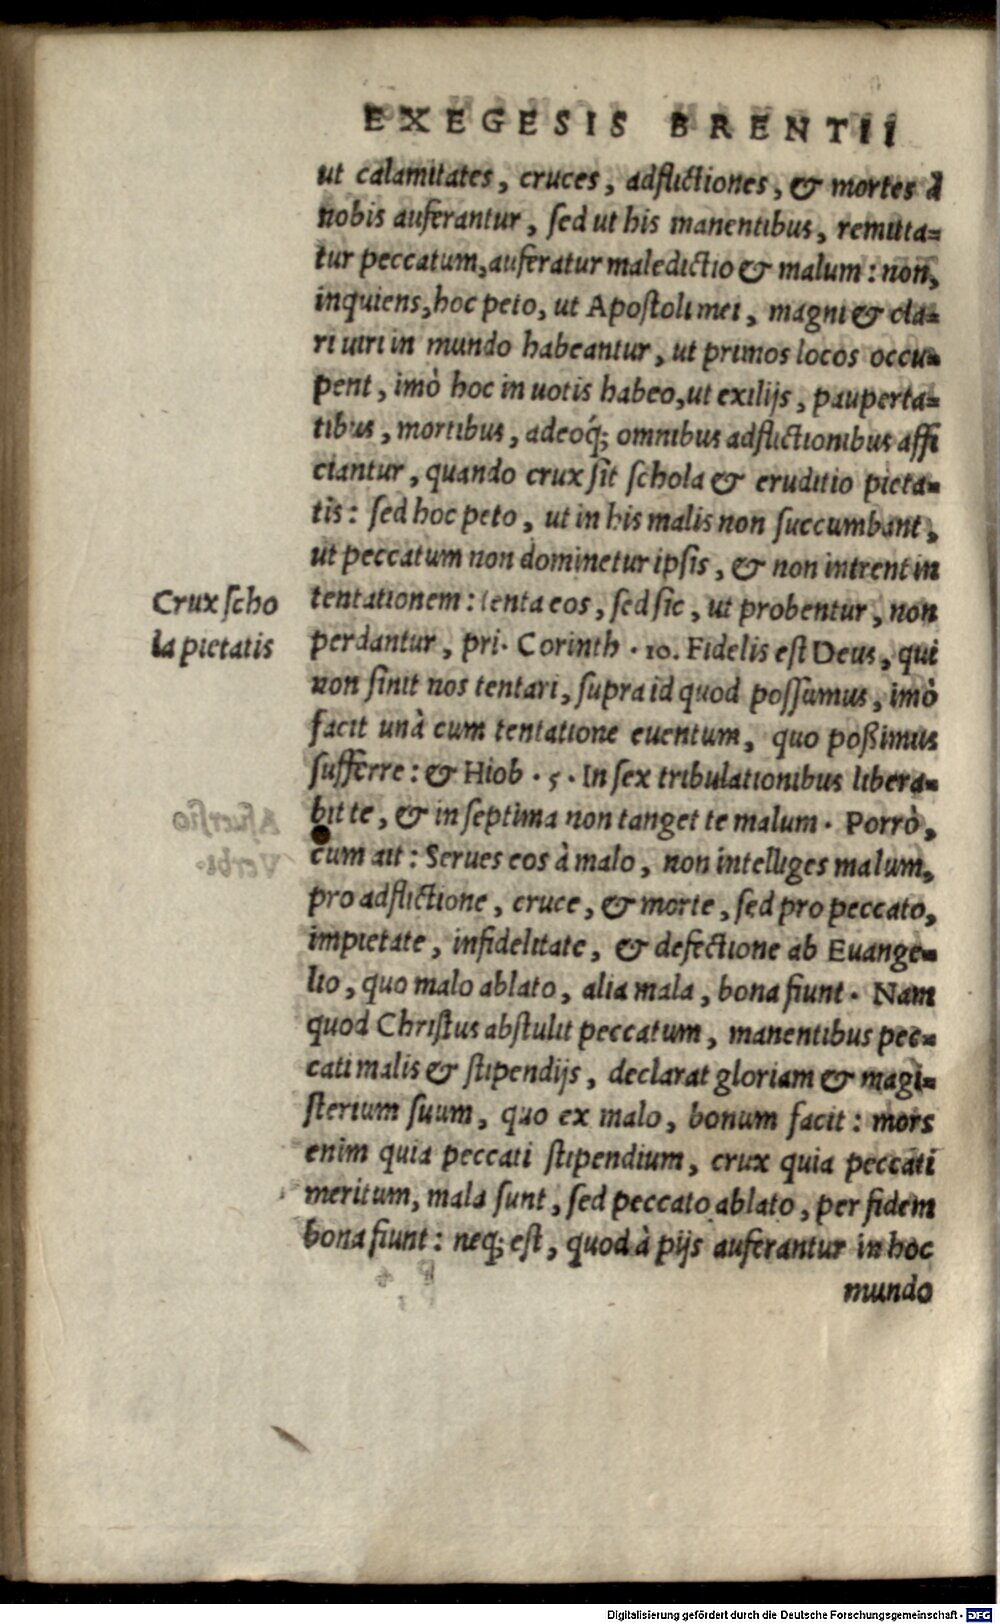 EXEGESIS BRENTII
ut calamitates, cruces, adflictiones, & mortes à
nobis auferantur, ſed ut his manentibus, remitta=
tur peccatum, auferatur maledictio & malum: non,
inquiens, hoc peto, ut Apoſtoli mei, magni & cla=
ri uiri in mundo habeantur, ut primos locos occu=
pent, imò hoc in uotis habeo, ut exilijs, pauperta=
tibus, mortibus, adeoq́; omnibus adflictionibus affi
ciantur, quando crux ſit ſchola & eruditio pieta=
tis: ſed hoc peto, ut in his malis non ſuccumbant,
ut peccatum non dominetur ipſis, & non intrent in
Crux ſcho
la pietatis
tentationem: tenta eos, ſed ſic, ut probentur, non
perdantur, pri. Corinth. 10. Fidelis eſt Deus, qui
non ſinit nos tentari, ſupra id quod poſſumus, imò
facit unà cum tentatione euentum, quo poßimus
ſufferre: & Hiob. 5. In ſex tribulationibus libera=
bit te, & in ſeptima non tanget te malum. Porrò,
cum ait: Serues eos à malo, non intelliges malum,
pro adflictione, cruce, & morte, ſed pro peccato,
impietate, infidelitate, & defectione ab Euange=
lio, quo malo ablato, alia mala, bona fiunt. Nam
quod Chriſtus abſtulit peccatum, manentibus pec=
cati malis & ſtipendijs, declarat gloriam & magi=
ſterium ſuum, quo ex malo, bonum facit: mors
enim quia peccati ſtipendium, crux quia peccati
meritum, mala ſunt, ſed peccato ablato, per fidem
bona fiunt: neq; eſt, quod à pijs auferantur in hoc
mundo
Digitalisierung gefördert durch die Deutsche Forschungsgemeinschaft - DFG